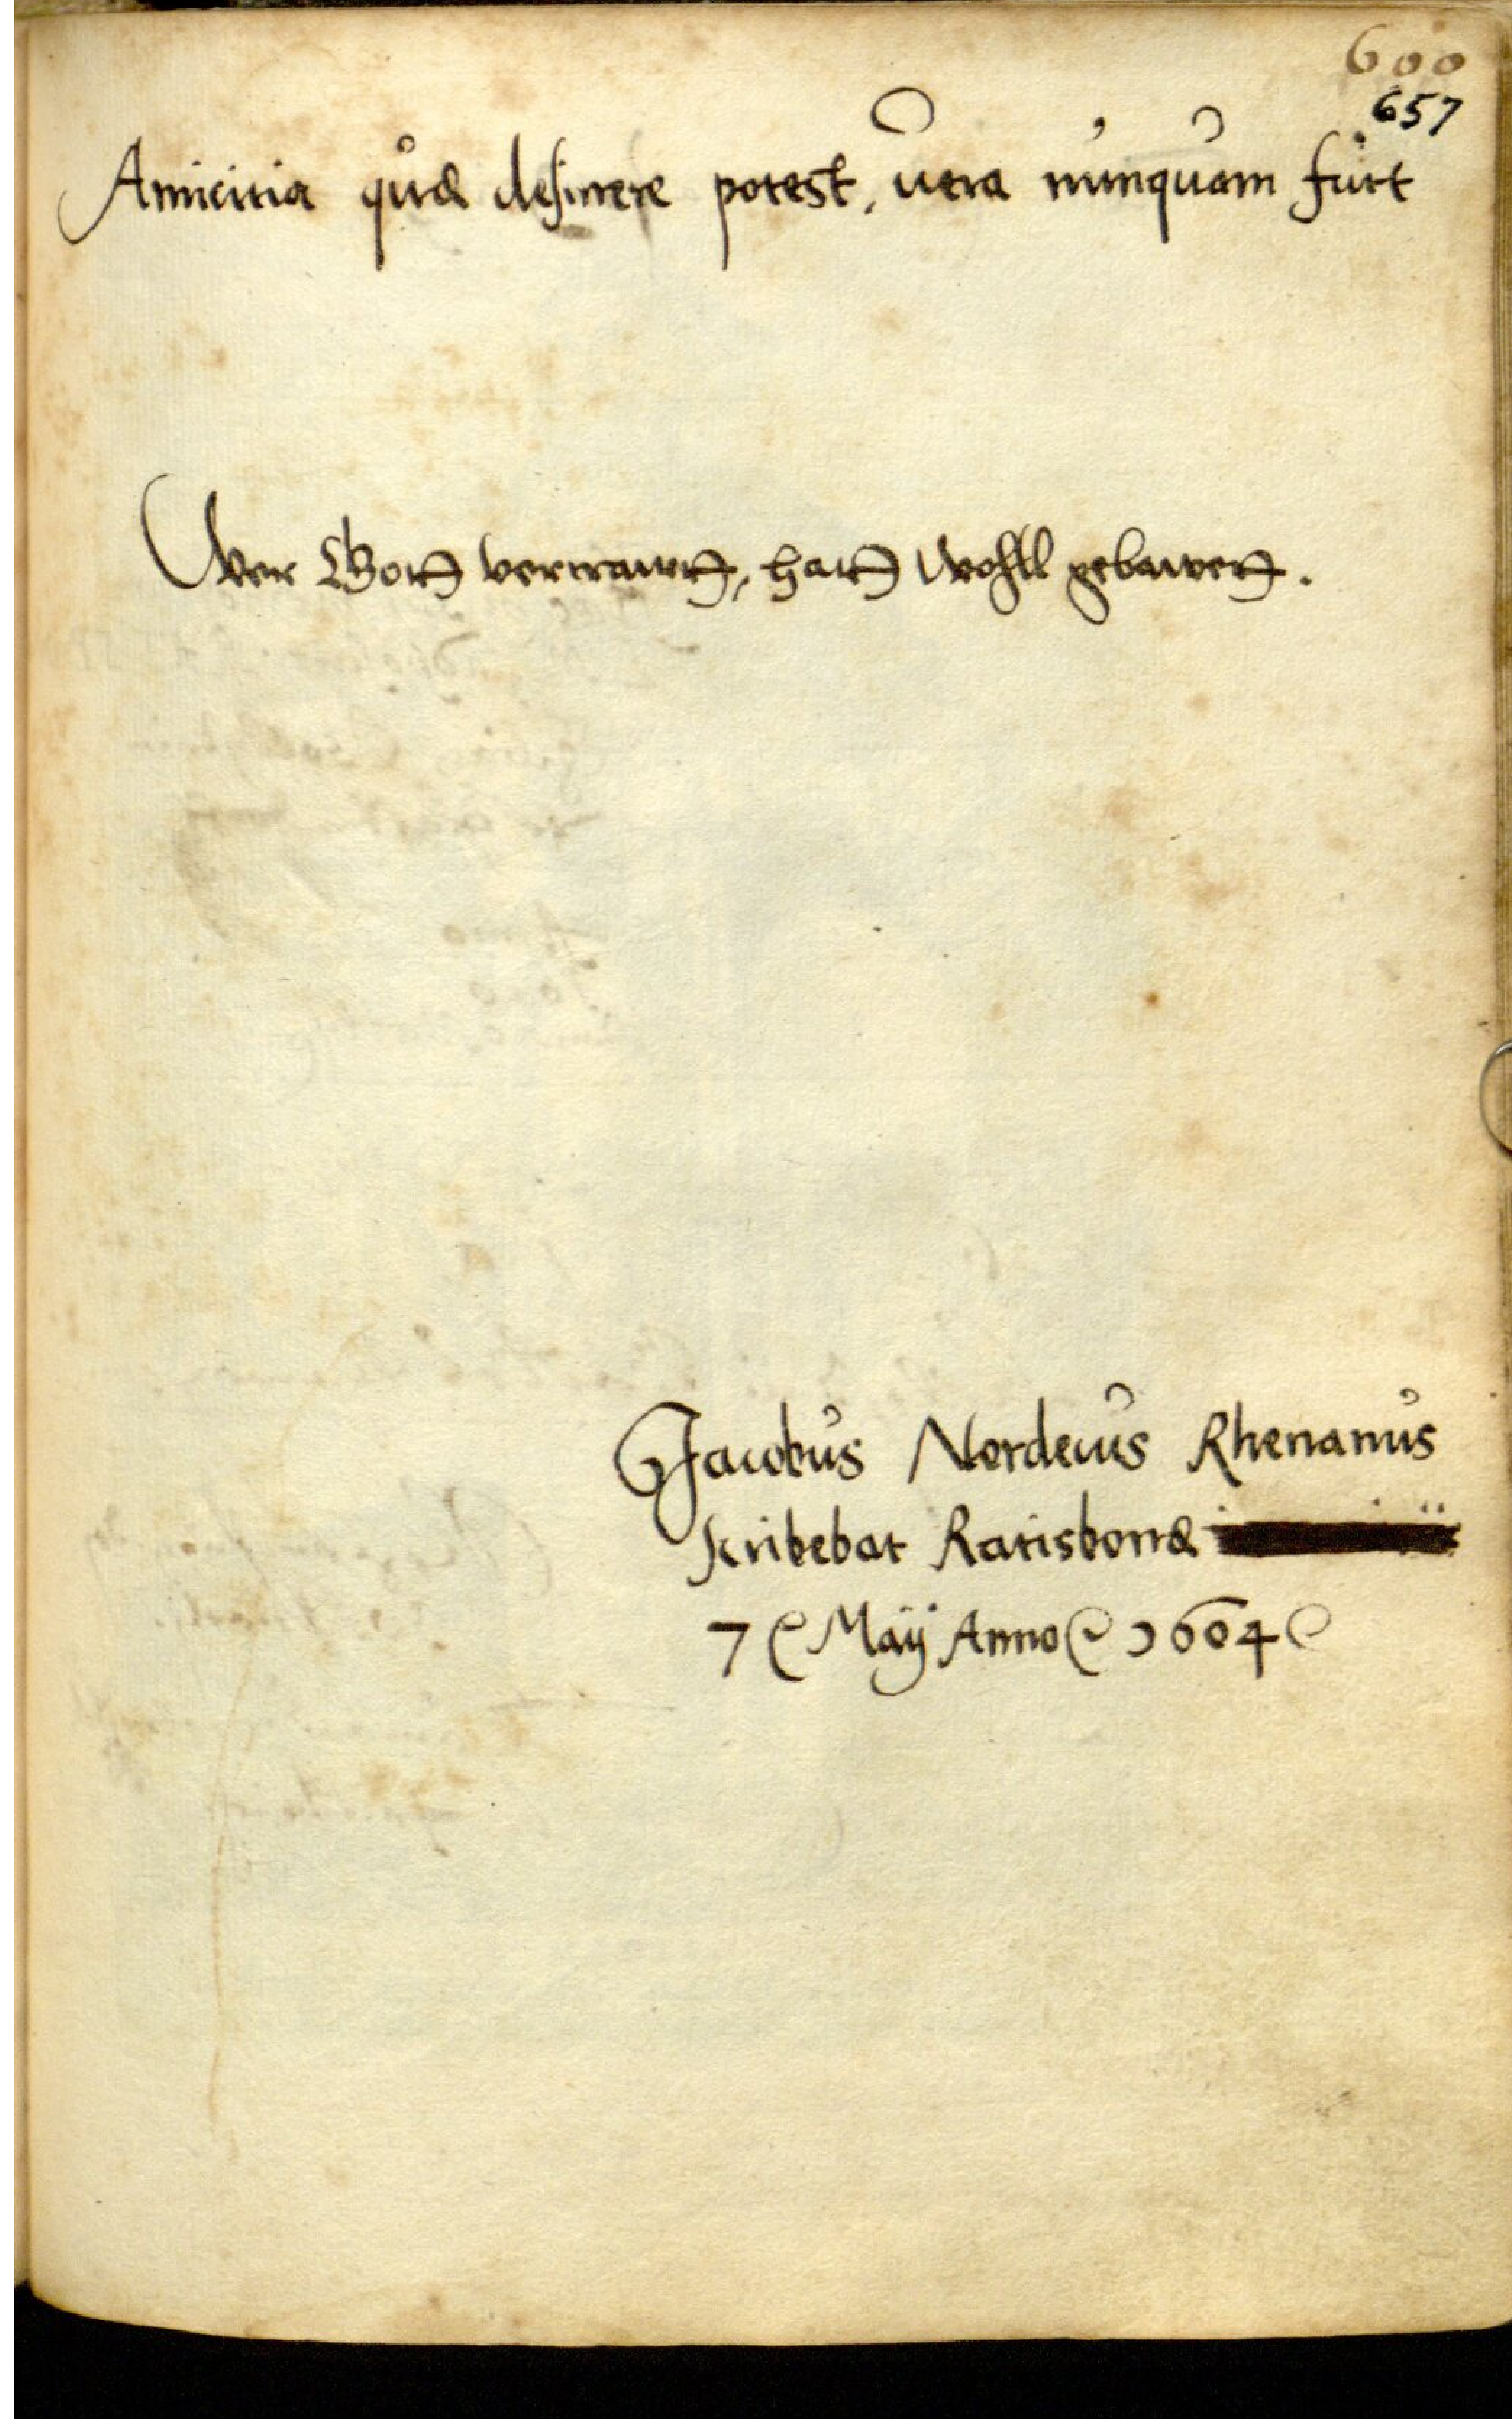 600
657
Amicitia quæ desinere potest, uera nunquam fuit
Wer Gott vertrauet, hatt Wohll gebawet.
Jacobus Nordecus Rhenanus
scribebat Ratisbonæ
7 Maÿ Anno 1604